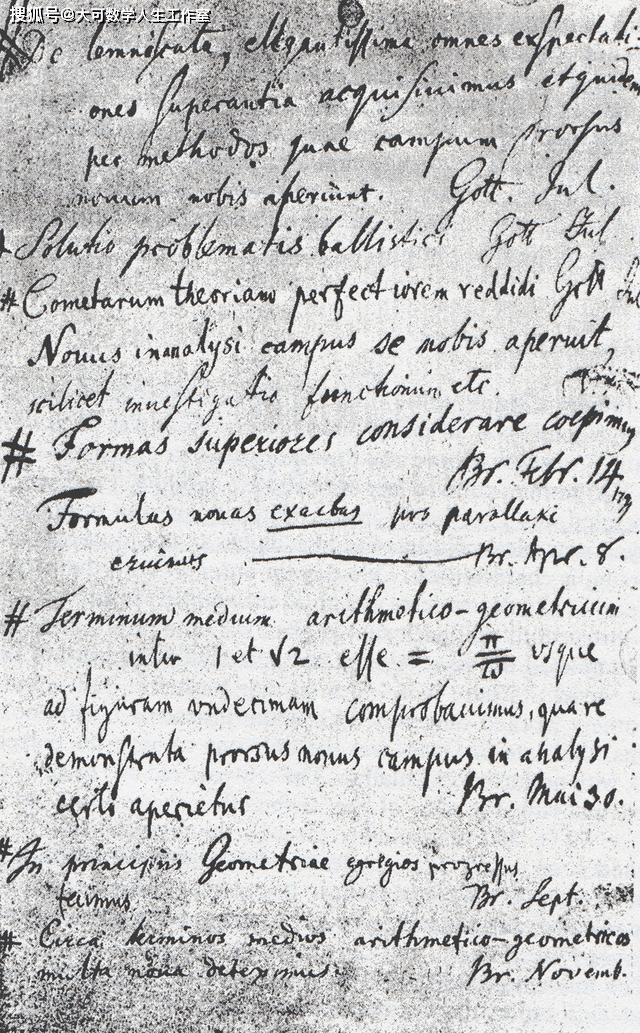 搜狐号@大可数学人生工作室
De lemniscata, elegantissima omnes exspectati-
ones superantia acquisivimus et quidem
per methodos quae campum prorsus
novum nobis aperiunt. Gott. Jul.
Solutio problematis ballistici Gott Jul
# Cometarum theoriam perfectiorem reddidi Gott Jul
Novus in analysi campus se nobis aperuit,
scilicet investigatio functionum etc.
# Formas superiores considerare coepimus
Br. Febr. 14
Formulas novas exactas pro parallaxi
eruimus Br. Apr. 8.
# Terminum medium arithmetico-geometricum
inter 1 et √2 esse = π/ω usque
ad figuram vndecimam comprobavimus, quare
demonstrata prorsus novus campus in analysi
certo aperietur Br. Mai 30.
# In principiis Geometriae egregios progressus
fecimus Br. Sept.
# Circa terminos medios arithmetico-geometricos
multa nova deteximus. Br. Novemb.